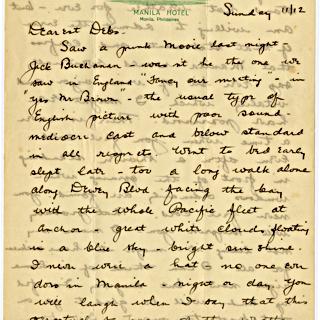 MANILA HOTEL
Manila, Philippines
Sunday 11/12
Dearest Debs.
Saw a punk movie last night
Jack Buchanan - wasn't he the one we
saw in England "Fancy our meeting" - in
"yes Mr Brown" - the usual type of
English picture with poor sound
mediocre cast and below standard
in all respects. Went to bed early
slept late - too a long walk alone
along Dewey Blvd facing the bay
with the whole Pacific fleet at
anchor - great white clouds floating
in a blue sky - bright sun shine.
I never wear a hat no one ever
does in Manila - night or day. You
will laugh when I say that this